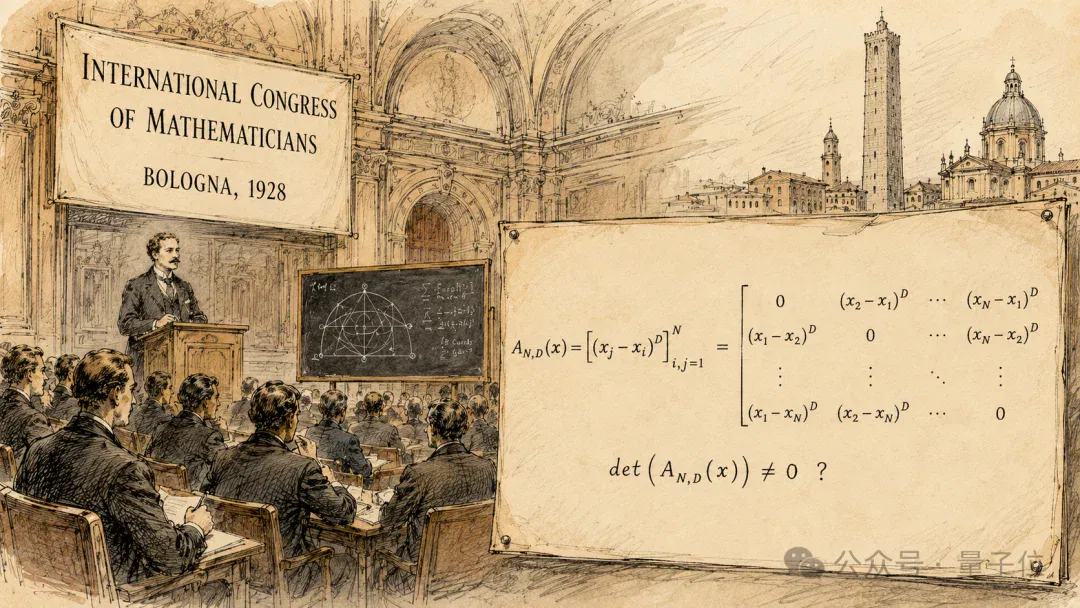 INTERNATIONAL CONGRESS
OF MATHEMATICIANS
BOLOGNA, 1928
A_{N,D}(x) = [(x_j − x_i)^D]_{i,j=1}^N = [ 0 (x_2 − x_1)^D ⋯ (x_N − x_1)^D
(x_1 − x_2)^D 0 ⋯ (x_N − x_2)^D
⋮ ⋮ ⋱ ⋮
(x_1 − x_N)^D (x_2 − x_N)^D ⋯ 0 ]
det(A_{N,D}(x)) ≠ 0 ?
公众号 · 量子位